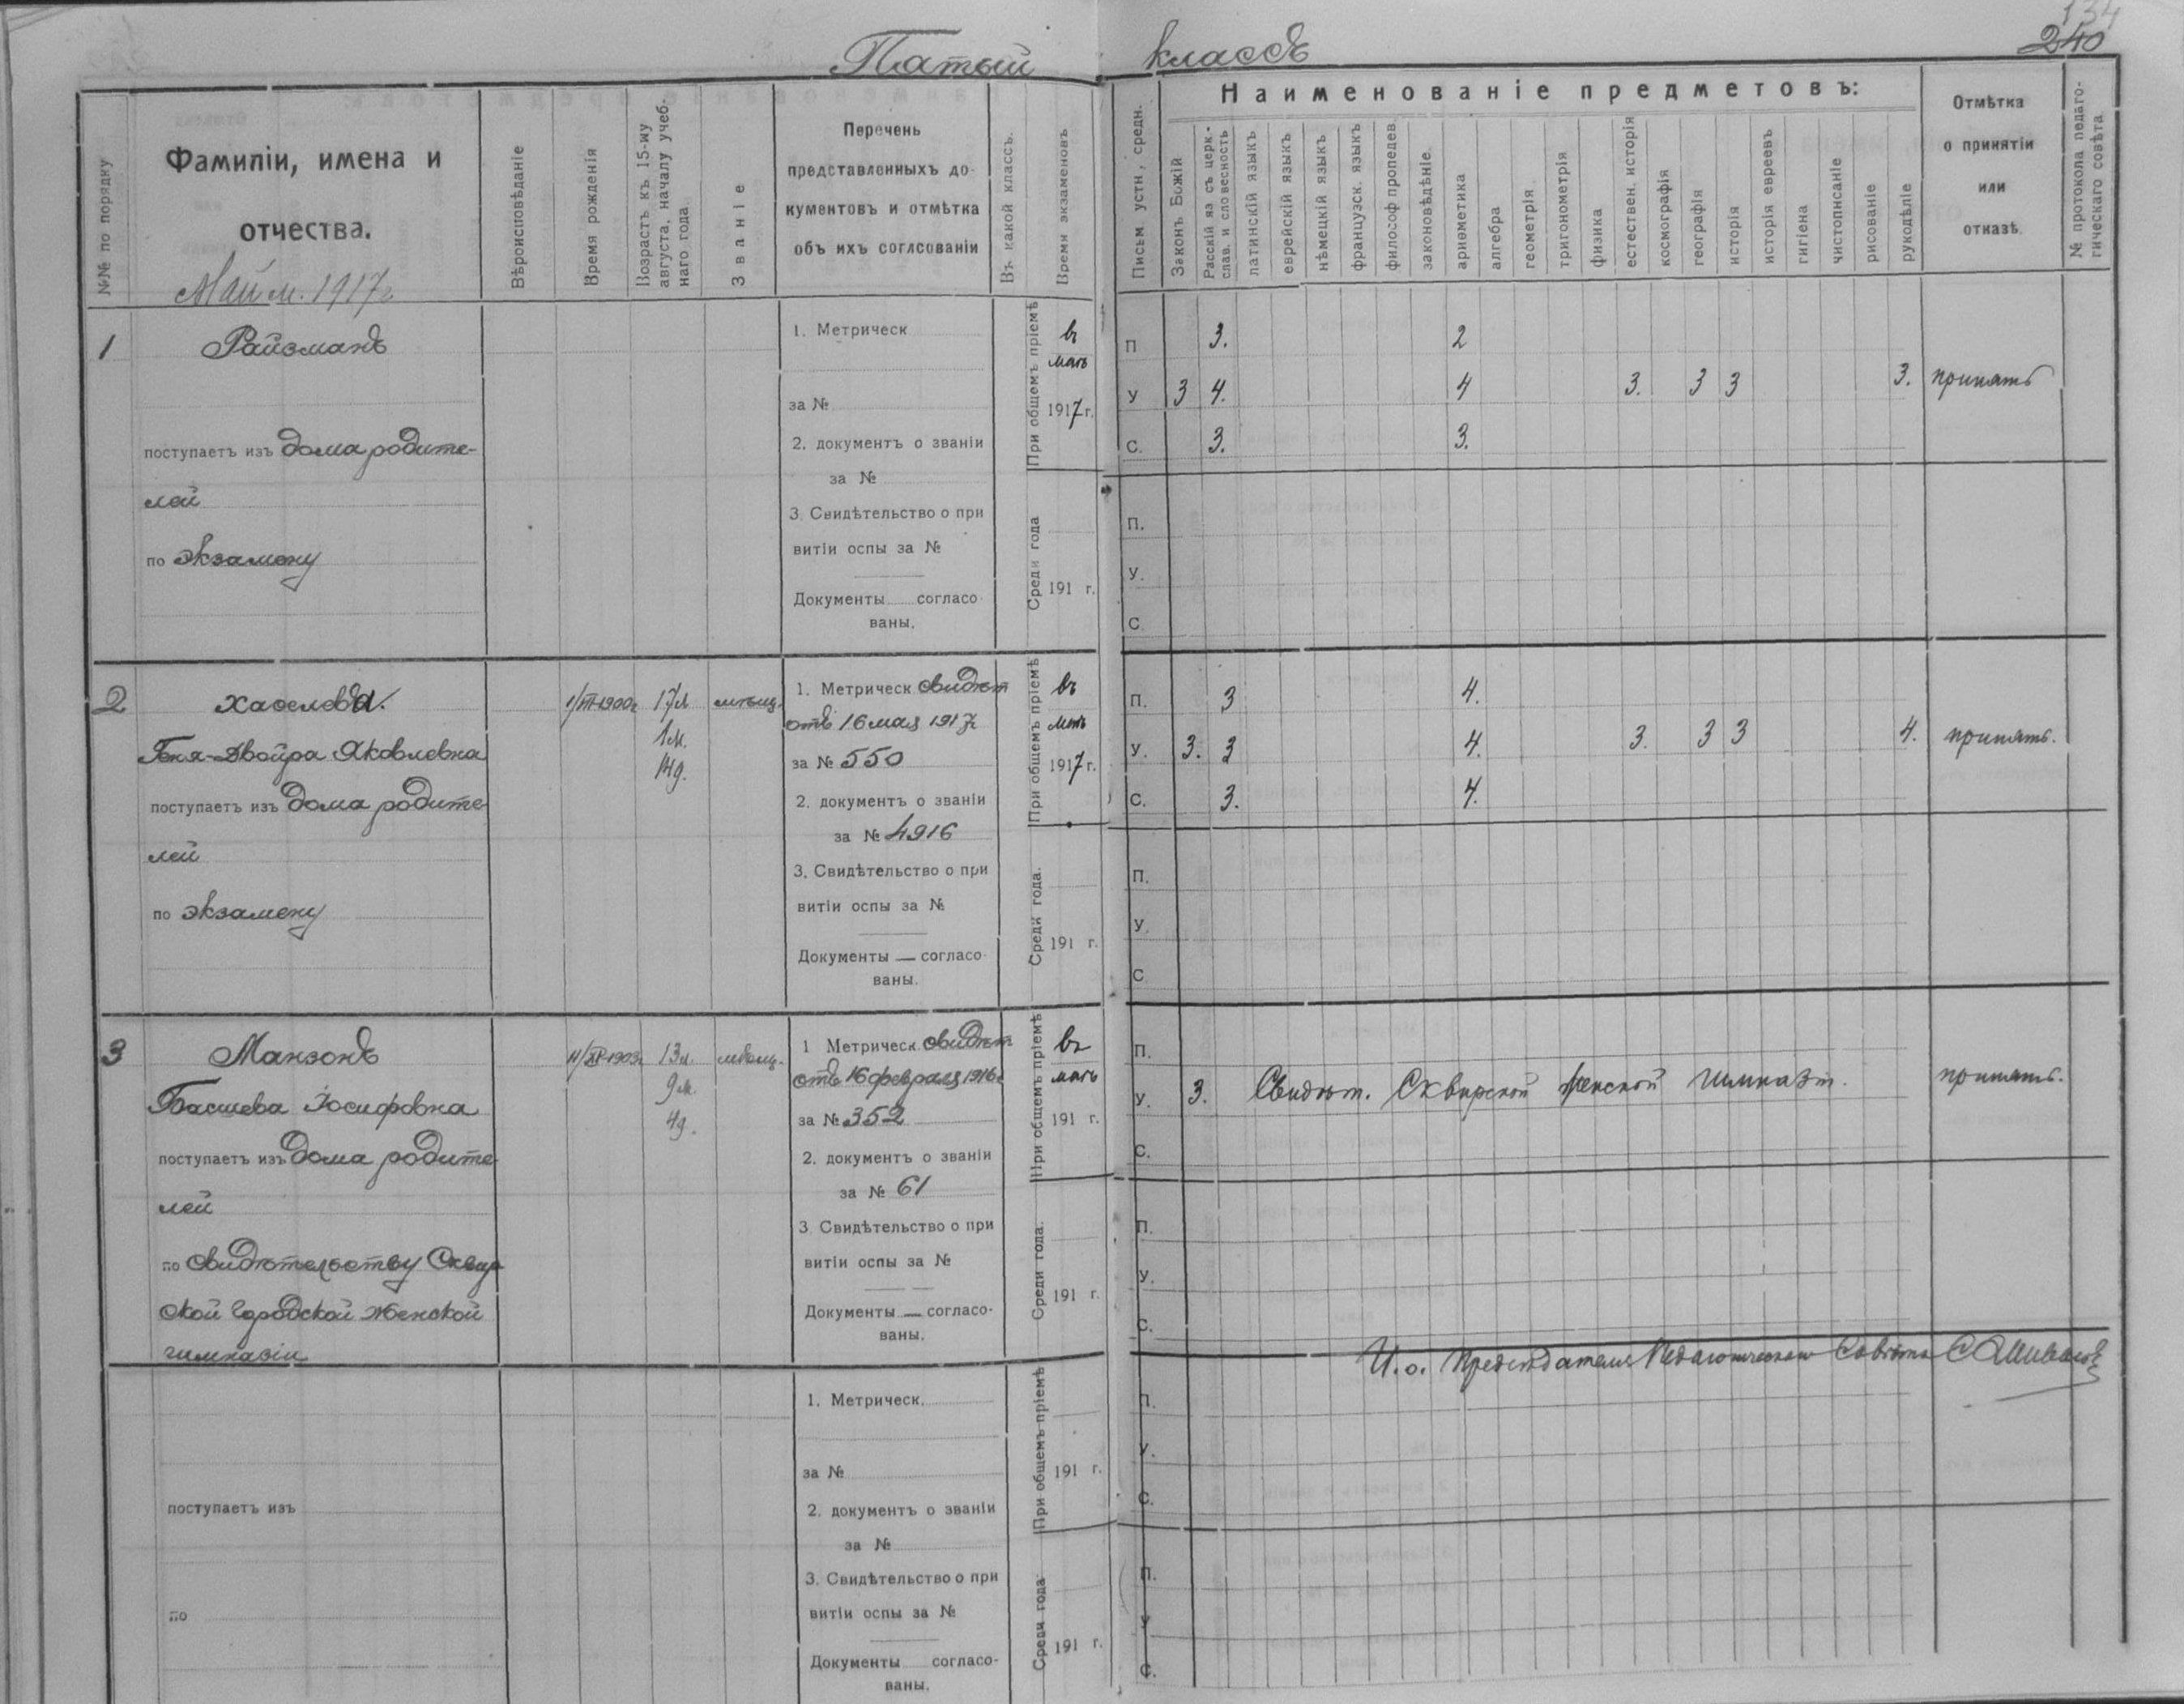 134
240
Пятый классъ
№№ по порядку
Фамиліи, имена и
отчества.
Май м. 1917 г
Вѣроисповѣданіе
Время рожденія
Возрастъ къ 15-му
августа, началу учеб-
наго года.
Званіе
Перечень
представленныхъ до-
кументовъ и отмѣтка
объ ихъ соглсованіи
Въ какой классъ.
Время экзаменовъ
Письм устн., средн.
Наименованіе предметовъ:
Законъ Божій
Расскій яз съ церк.-
слав. и словесность
латинскій языкъ
еврейскій языкъ
нѣмецкій языкъ
французск. языкъ
философ пропедев
законовѣдѣніе
ариѳметика
алгебра
геометрія
тригонометрія
физика
естествен. исторія
космографія
географія
исторія
исторія евреевъ
гигіена
чистописаніе
рисованіе
рукодѣліе
Отмѣтка
о принятіи
или
отказѣ
№ протокола педаго-
гическаго совѣта.
1
Райзманъ
поступаетъ изъ дома родите-
лей
по экзамену
1. Метрическ
за №
2. документъ о званіи
за №
3. Свидѣтельство о при
витіи оспы за №
Документы согласо
ваны.
При общемъ пріемѣ
въ
маѣ
1917 г.
Среди года
191 г.
П 3. 2
У 3 4. 4 3. 3 3 3. принять
С. 3. 3.
П.
У.
С.
2
Двойра Яковлевна
поступаетъ изъ дома родите
лей
по экзамену
1900 г. 17 л
1 м.
14 д.
мѣщ.
1. Метрическ свидѣт
отъ 16 мая 1917 г
за № 550
2. документъ о званіи
за № 4916
3. Свидѣтельство о при
витіи оспы за №
Документы — согласо-
ваны.
При общемъ пріемѣ
въ
маѣ
1917 г.
Среди года.
191 г.
П. 3 4.
У. 3. 3 4. 3. 3 3 4. принять.
С. 3. 4.
П.
У.
С
3
Манзонъ
Басшева Іосифовна
поступаетъ изъ дома родите
лей
по свидѣтельству Сквир
ской городской женской
гимназіи
1903 г. 13 л.
9 м.
4 д.
мѣщ.
1 Метрическ. свидѣт
отъ 16 февраля 1916 г
за № 352
2. документъ о званіи
за № 61
3 Свидѣтельство о при
витіи оспы за №
Документы — согласо-
ваны.
При общемъ пріемѣ
въ
маѣ
191 г.
Среди года.
191 г.
П.
У. 3. Свидѣт. Сквирской женской гимназіи. принять.
С.
П.
У.
С.
И. о. Предсѣдателя Педагогическаго Совѣта
поступаетъ изъ
по
1. Метрическ.
за №
2. документъ о званіи
за №
3. Свидѣтельство о при
витіи оспы за №
Документы согласо-
ваны.
При общемъ пріемѣ
191 г.
Среди года
191 г.
П.
У.
С.
П.
У
С.